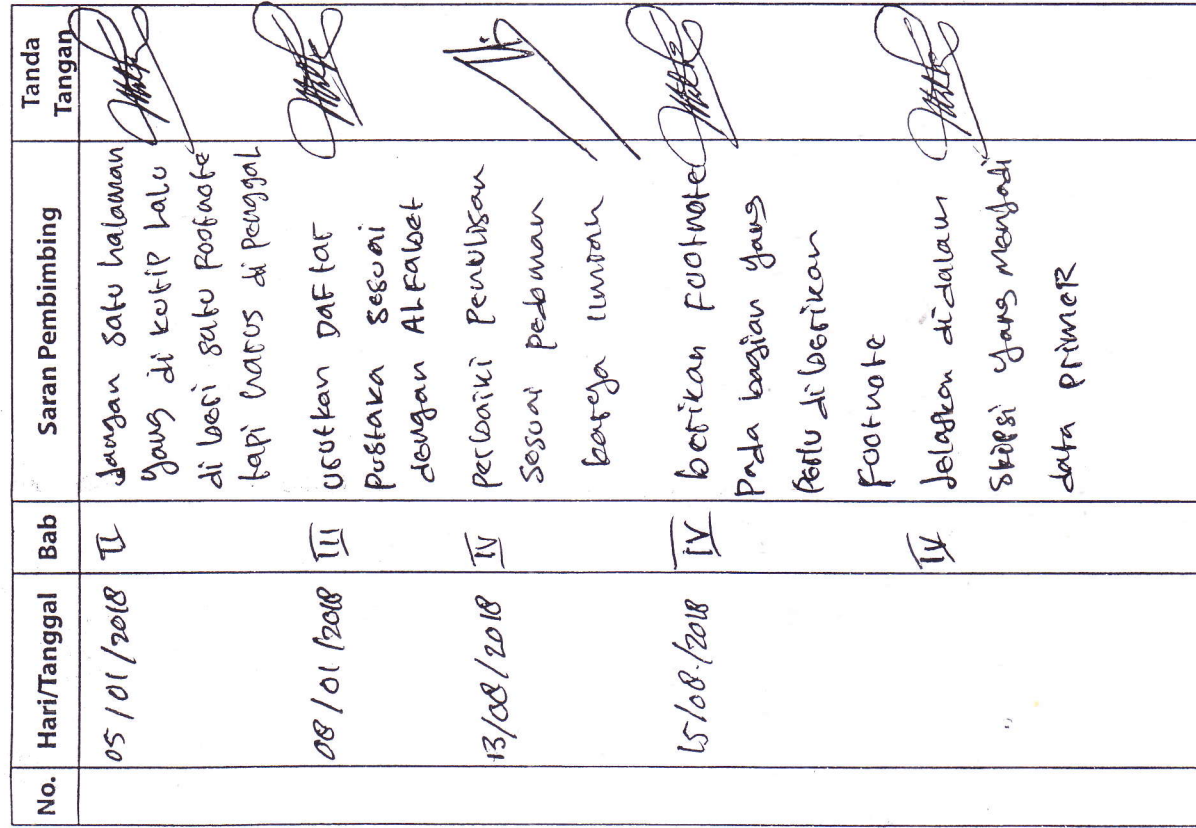 No. Hari/Tanggal Bab Saran Pembimbing Tanda Tangan
05/01/2018 II Jangan satu halaman
yang di kutip lalu
di beri satu Footnote
tapi harus di penggal
08/01/2018 III urutkan DAFtar
Pustaka sesuai
dengan ALFabet
13/08/2018 IV perbaiki penulisan
Sesuai pedoman
karya ilmiah
15/08/2018 IV berikan Footnote
Pada bagian yang
Perlu di berikan
Footnote
IV Jelaskan didalam
Skripsi yang menjadi
data PRimeR